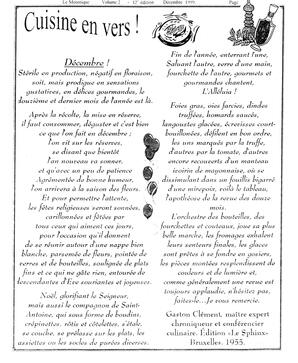 Le Motenique Volume 2 - 12e édition Décembre 1999 Page
Cuisine en vers !
Décembre !
Stérile en production, négatif en floraison,
soit, mais prodigue en sensations
gustatives, en délices gourmandes, le
douzième et dernier mois de l'année est là.
Après la récolte, la mise en réserve,
il faut consommer, déguster et c'est bien
ce que l'on fait en décembre ;
l'on vit sur les réserves,
se disant que bientôt
l'an nouveau va sonner.
et qu'avec un peu de patience
Agrémentée de bonne humeur,
l'on arrivera à la saison des fleurs.
Et pour permettre l'attente,
les fêtes religieuses seront sonnées,
carillonnées et fêtées par
tous ceux qui aiment ces jours,
pour l'occasion qu'il donnent
de se réunir autour d'une nappe bien
blanche, parsemée de fleurs, pointée de
verres et de bouteilles, soulignée de plats
fins et ce qui ne gâte rien, entourée de
descendantes d'Eve souriantes et joyeuses.
Noël, glorifiant le Seigneur,
mais aussi le compagnon de Saint-
Antoine, qui sous forme de boudins,
crépinettes, rôtis et côtelettes, s'étale,
se couche, se prélasse sur les plats, les
assiettes ou les socles de purées diverses.
Fin de l'année, enterrant l'une,
Saluant l'autre, verre d'une main,
fourchette de l'autre, gourmets et
gourmandes chantent.
L'Alléluia !
Foies gras, oies farcies, dindes
truffées, homards saucés,
langoustes glacées, écrevisses court-
bouillonnées, défilent en bon ordre,
les uns marqués par la truffe,
d'autres par la tomate, d'autres
encore recouverts d'un manteau
ivoirin de mayonnaise, où se
dissimulant dans un fouillis bigarré
d'une mirepoix, voilà le tableau,
l'apothéose de la revue des douze
mois.
L'orchestre des bouteilles, des
fourchettes et couteaux, joue sa plus
belle marche, les fromages exhalent
leurs senteurs finales, les glaces
sont prêtes à se fondre en gosiers,
les pièces montées resplendissent de
couleurs et de lumière et,
comme généralement une revue est
toujours applaudie, n'hésitez pas,
faites-le...Je vous remercie.
Gaston Clément, maître expert
chroniqueur et conférencier
culinaire. Édition «Le Sphinx»
Bruxelles. 1955.